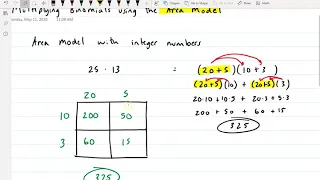 Multiplying Binomials using the Area Model
Monday, May 11, 2020 11:08 AM
Area model with integer numbers
25 · 13 = (20+5)(10+3)
(20+5)(10) + (20+5)(3)
20·10 + 10·5 + 20·3 + 5·3
200 + 50 + 60 + 15
325
20 5
10 200 50
3 60 15
325